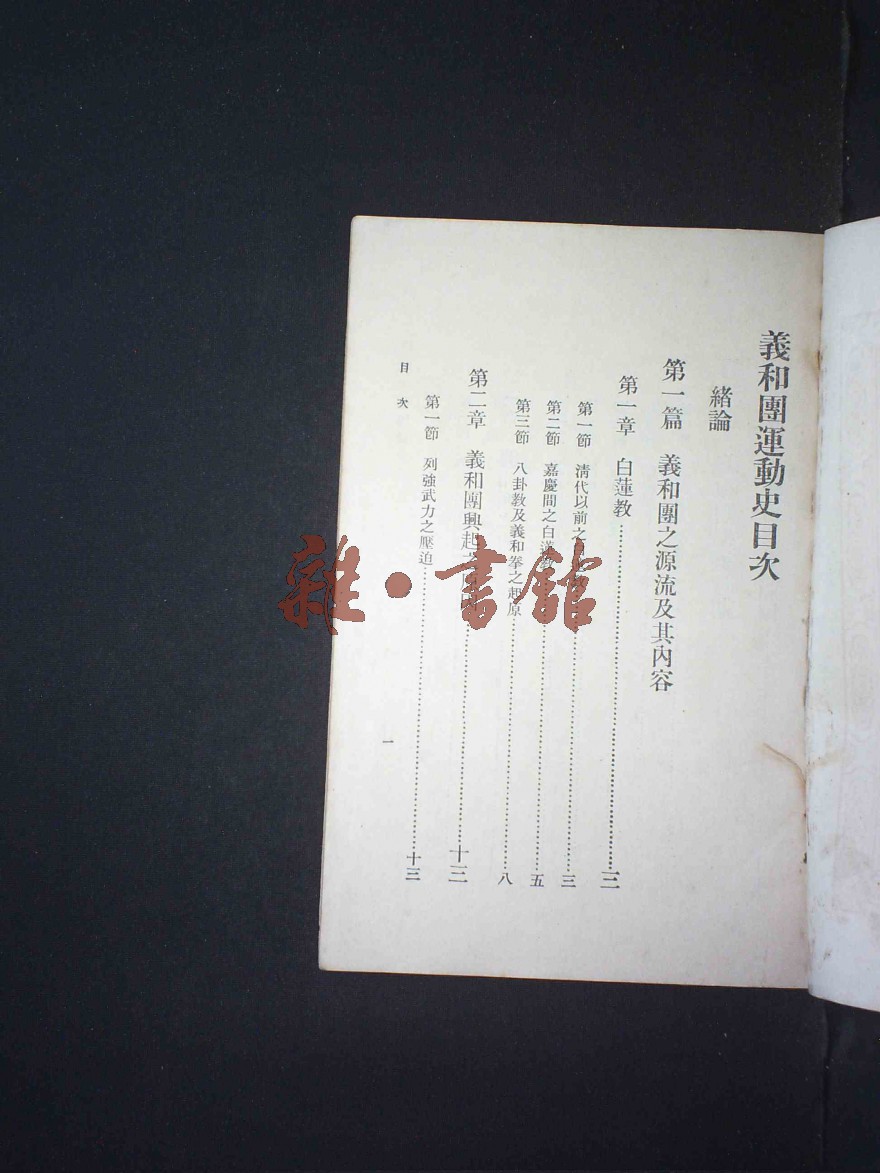 義和團運動史目次
緒論
第一篇 義和團之源流及其內容
第一章 白蓮教……三
第一節 清代以前之……三
第二節 嘉慶間之白蓮教……五
第三節 八卦教及義和拳之起原……八
第二章 義和團興起……十三
第一節 列強武力之壓迫……十三
目次
一
雜·書館